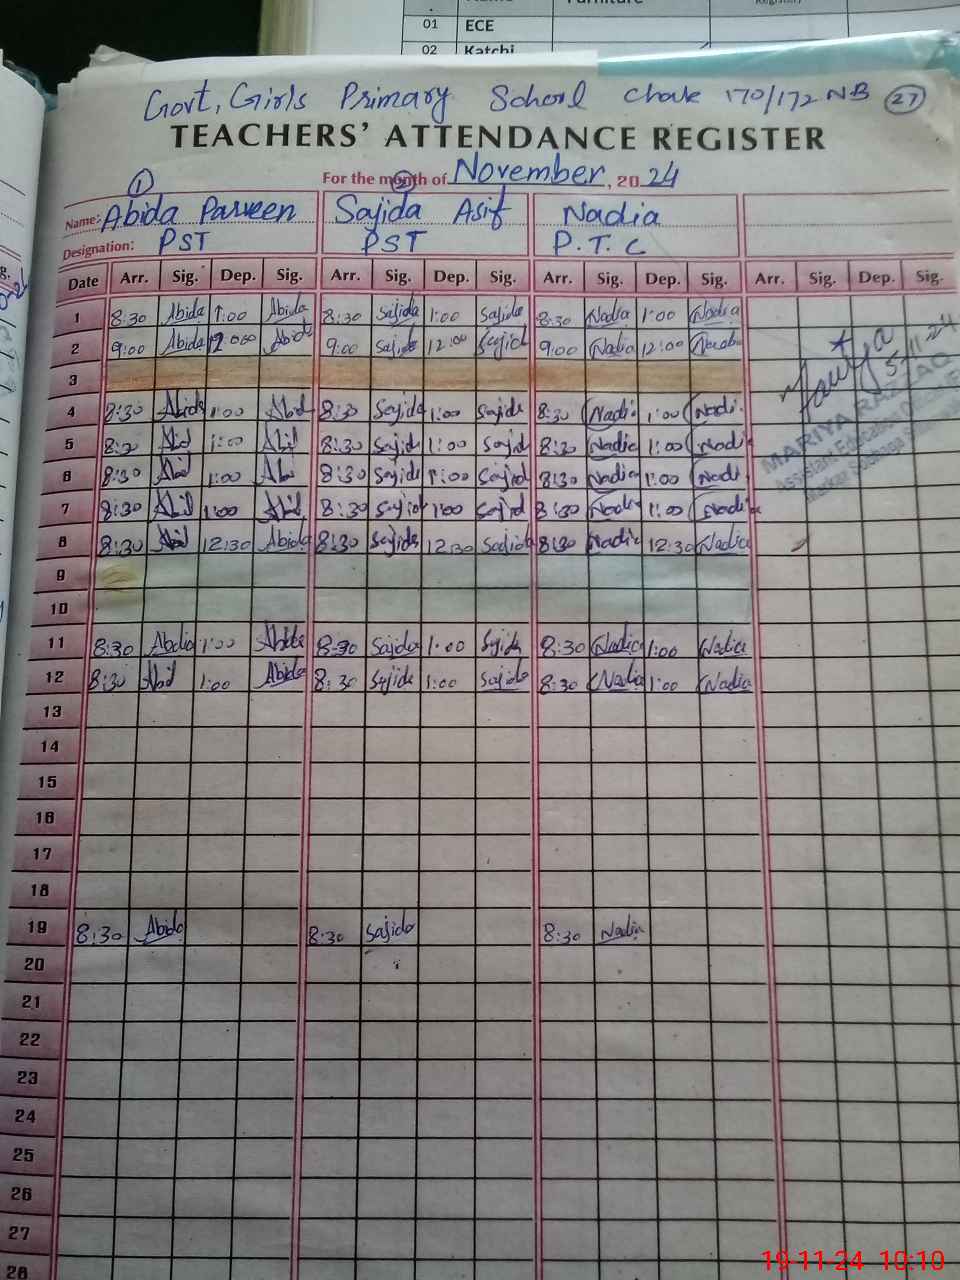 01 ECE
02 Katchi
Govt, Girls Primary School Chak 170/172 NB 27
TEACHERS' ATTENDANCE REGISTER
For the month of November, 2024
1 2
Name: Abida Parveen Sajida Asif Nadia
Designation: PST PST P.T.C
Date Arr. Sig. Dep. Sig. Arr. Sig. Dep. Sig. Arr. Sig. Dep. Sig. Arr. Sig. Dep. Sig.
1 8:30 Abida 1:00 Abida 8:30 Sajida 1:00 Sajida 8:30 Nadia 1:00 Nadia
2 9:00 Abida 12:00 Abida 9:00 Sajid 12:00 Sajid 9:00 Nadia 12:00
3
4 8:30 Abida 1:00 Abid 8:30 Sajid 1:00 Sajid 8:30 Nadi 1:00 Nadi
5 1:00 Abid 8:30 Sajid 1:00 Sajid 8:30 Nadia 1:00 Nadi
6 8:30 Abid 1:00 Abi 8:30 Sajid 1:00 Sajid 8:30 Nadia 1:00 Nadi
7 8:30 Abid 1:00 Abid 8:30 Sajid 1:00 Sajid 8:30 Nadia 1:00 Nadia
8 8:30 Abid 12:30 Abida 8:30 Sajida 12:30 Sajida 8:30 Nadia 12:30 Nadia
9
10
11 8:30 Abdia 1:00 Abida 8:30 Sajida 1:00 Sajida 8:30 Nadia 1:00 Nadia
12 8:30 Abid 1:00 Abida 8:30 Sajida 1:00 Sajida 8:30 Nadia 1:00 Nadia
13
14
15
16
17
18
19 8:30 Abida 8:30 Sajida 8:30 Nadia
20
21
22
23
24
25
26
27
28
5-11-24
MARIYA RAZZAQ
Assistant Education Officer
19-11-24 10:10